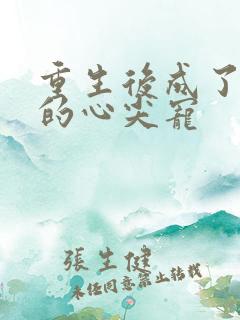 重生後成了
的心尖寵
張生健
未經同意禁止轉載